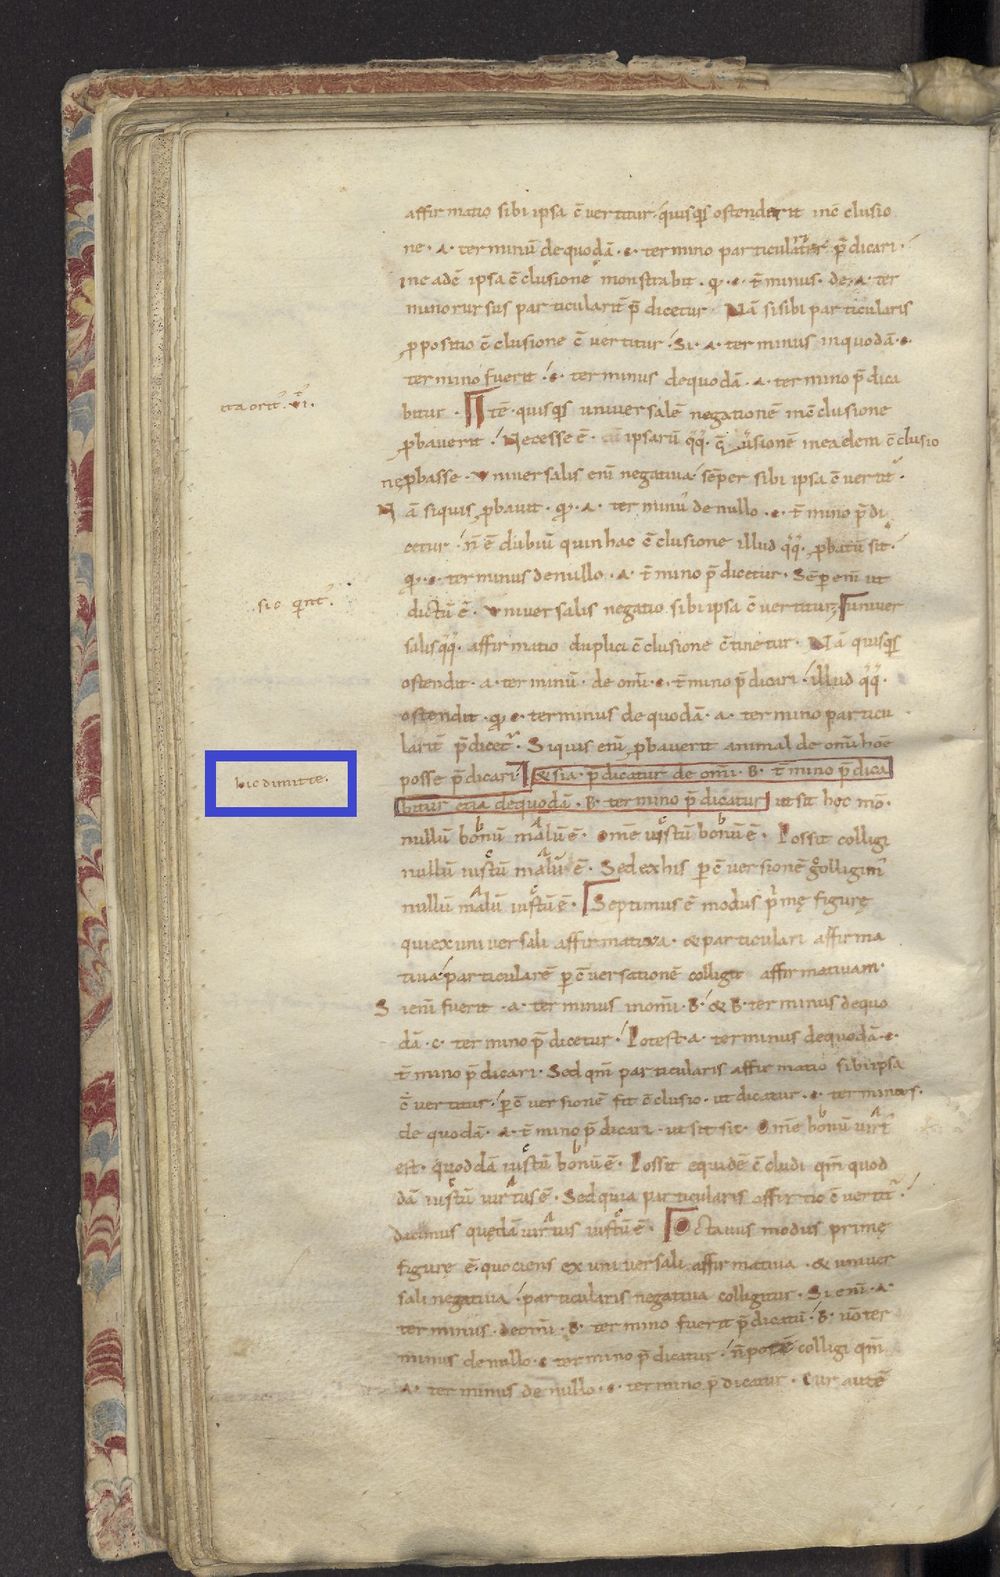 affirmatio sibi ipsa c̄vertitur· quisq̄s ostenderit inc̄clusio
ne· A· terminū de quodā ·c· termino particulariter p̄dicari·
in eadē ipsa c̄clusione monstrabit· qđ ·c· t̄minus· de· A· ter
mino rursus particularit̄ p̄dicetur· Nā si sibi particularis
ꝓpositio c̄clusione c̄vertitur· Si· A· terminus in quodā ·c·
termino fuerit· c· terminus de quodā· A· termino p̄dica
ita orit̄· vi·
bitur· Itē· quisq̄s universalē negationē inc̄clusione
ꝓbaverit· Necesse ē· ipsarū qq· c̄versionē in eadem c̄clusio
neꝓbasse· Universalis enī negativa sēper sibi ipsa c̄vertit̄·
Nā si quis ꝓbavit· qđ· A· terminū de nullo ·c· t̄mino p̄di
cetur· n̄ ē dubiū quin hac c̄clusione illud qq· ꝓbatū sit·
qđ· c· terminus de nullo· A· t̄mino p̄dicetur· Sēp enī ut
sic
dictū ē· Universalis negatio sibi ipsa c̄vertitur; univer
salis qq· affirmatio duplici c̄clusione c̄tinetur· Nā quisq̄s
ostendit· A· terminū· de omī· c· t̄mino p̄dicari· illud qq·
ostendit· qđ c· terminus de quodā· A· termino particu
larit̄ p̄dicet̄· Si quis enī ꝓbaverit animal de omī hoīe
hic dimitte·
posse p̄dicari· & si A· p̄dicatur de omī· B· t̄mino p̄dica
bitur etiā de quodā· B· termino p̄dicatur ut sit hoc mō·
nullū bonū malū ē· Omē iustū bonū ē· Possit colligi
nullū iustū malū ē· Sed ex his p c̄versionē colligim̄
nullū malū iustū ē· Septimus ē modus p̄mę figurę
qui ex universali affirmativa· & particulari affirma
tiva particularē p c̄versationē colligit affirmativam·
Si enī fuerit· A· terminus in omī· B· & B· terminus de quo
dā· C· termino p̄dicetur· Potest· A· terminus de quodā ·c·
t̄mino p̄dicari· Sed qm̄ particularis affirmatio sibi ipsa
c̄vertitur· p c̄versionē fit c̄clusio· ut dicatur· c· terminus·
de quodā· A· t̄mino p̄dicari· ut si sit· Omē bonū virt̄
est· quoddā iustū bonū ē· Possit equidē c̄cludi qm̄ quod
dā iustū virtus ē· Sed quia particularis affirtio c̄vertit̄·
dicimus quędā virtus iustū ē· Octavus modus primę
figurę ē· quociens ex universali affirmativa· & univer
sali negativa· particularis negativa colligitur· Si enī· A·
terminus· de omī· B· termino fuerit p̄dicatū· B· v̄o ter
minus de nullo· c termino p̄dicatur· n̄ potē colligi qm̄
A· terminus de nullo· c· termino p̄dicatur· Cur autē